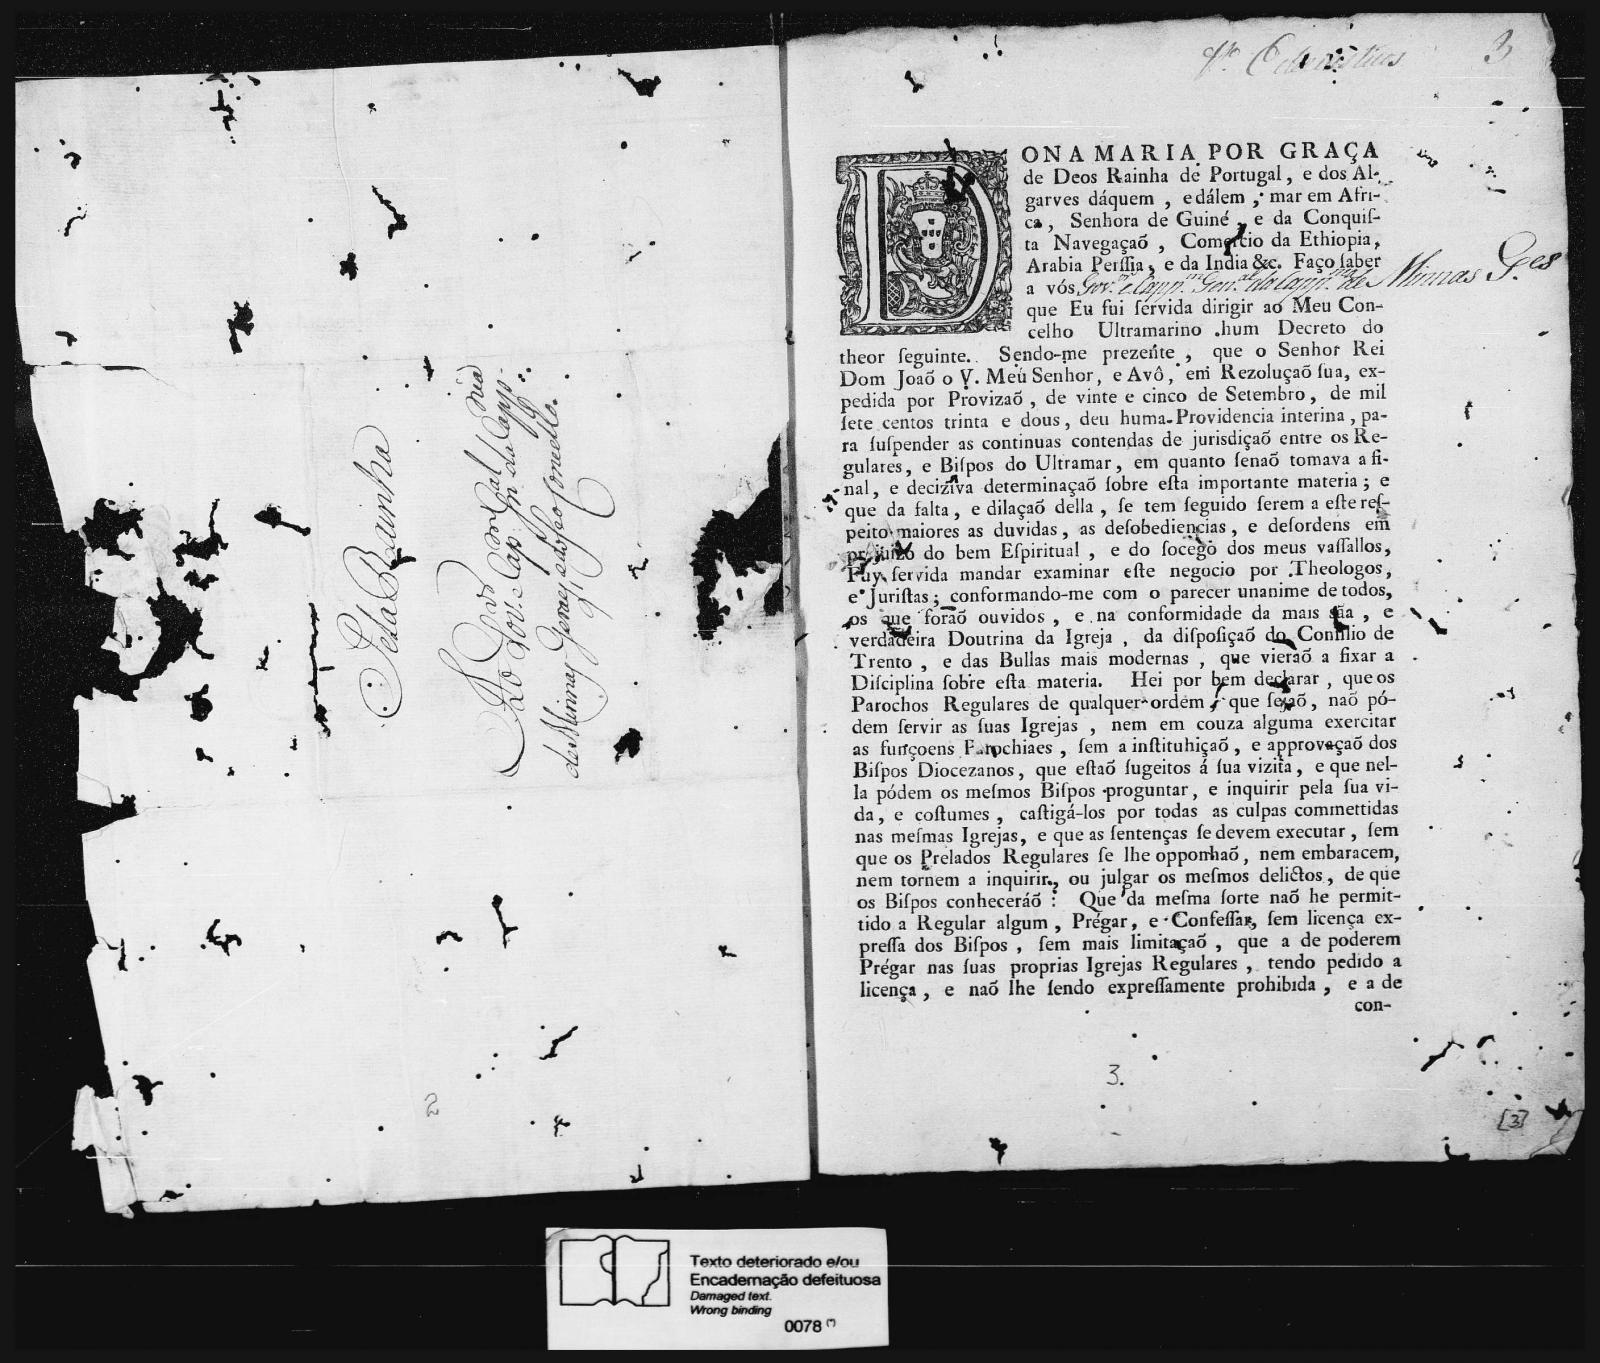 Pela Rainha
Ao Gov.or e Cap.m Gen.al da Capp.nia
de Minnas Geraes, do seo Concelho.
2
Ecleziasticos
3
DONA MARIA POR GRAÇA
de Deos Rainha de Portugal, e dos Al-
garves dáquem, e dálem, mar em Afri-
ca, Senhora de Guiné, e da Conquiſ-
ta Navegaçaõ, Comercio da Ethiopia,
Arabia Perſſia, e da India &c. Faço ſaber
a vós Gov.or e Capp.m Gen.al da Capp.nia de Minnas G.es
que Eu fui ſervida dirigir ao Meu Con-
celho Ultramarino hum Decreto do
theor ſeguinte. Sendo-me prezente, que o Senhor Rei
Dom Joaõ o V. Meu Senhor, e Avô, em Rezoluçaõ ſua, ex-
pedida por Provizaõ, de vinte e cinco de Setembro, de mil
ſete centos trinta e dous, deu huma Providencia interina, pa-
ra ſuſpender as continuas contendas de jurisdiçaõ entre os Re-
gulares, e Biſpos do Ultramar, em quanto ſenaõ tomava a fi-
nal, e deciziva determinaçaõ ſobre eſta importante materia; e
que da falta, e dilaçaõ della, ſe tem ſeguido ſerem a eſte reſ-
peito maiores as duvidas, as deſobediencias, e deſordens em
prejuizo do bem Eſpiritual, e do ſocego dos meus vaſſallos,
Fuy ſervida mandar examinar eſte negocio por Theologos,
e Juriſtas; conformando-me com o parecer unanime de todos,
os que foraõ ouvidos, e na conformidade da mais sãa, e
verdadeira Doutrina da Igreja, da diſpoſiçaõ do Conſilio de
Trento, e das Bullas mais modernas, que vieraõ a fixar a
Diſciplina ſobre eſta materia. Hei por bem declarar, que os
Parochos Regulares de qualquer ordem, que ſejaõ, naõ pó-
dem ſervir as ſuas Igrejas, nem em couza alguma exercitar
as funçoens Parochiaes, ſem a inſtituhiçaõ, e approvaçaõ dos
Biſpos Diocezanos, que eſtaõ ſugeitos á ſua vizita, e que nel-
la pódem os meſmos Biſpos proguntar, e inquirir pela ſua vi-
da, e coſtumes, caſtigá-los por todas as culpas commettidas
nas meſmas Igrejas, e que as ſentenças ſe devem executar, ſem
que os Prelados Regulares ſe lhe opponhaõ, nem embaracem,
nem tornem a inquirir, ou julgar os meſmos delictos, de que
os Biſpos conheceráõ: Que da meſma ſorte naõ he permit-
tido a Regular algum, Prégar, e Confeſſar, ſem licença ex-
preſſa dos Biſpos, ſem mais limitaçaõ, que a de poderem
Prégar nas ſuas proprias Igrejas Regulares, tendo pedido a
licença, e naõ lhe ſendo expreſſamente prohibida, e a de
con-
3.
[3]
Texto deteriorado e/ou
Encadernação defeituosa
Damaged text.
Wrong binding
0078 (*)